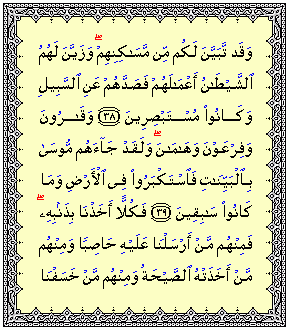 وَقَد تَّبَيَّنَ لَكُم مِّن مَّسَٰكِنِهِمْ ۖ وَزَيَّنَ لَهُمُ
ٱلشَّيْطَٰنُ أَعْمَٰلَهُمْ فَصَدَّهُمْ عَنِ ٱلسَّبِيلِ
وَكَانُوا۟ مُسْتَبْصِرِينَ ﴿٣٨﴾ وَقَٰرُونَ
وَفِرْعَوْنَ وَهَٰمَٰنَ ۖ وَلَقَدْ جَآءَهُم مُّوسَىٰ
بِٱلْبَيِّنَٰتِ فَٱسْتَكْبَرُوا۟ فِى ٱلْأَرْضِ وَمَا
كَانُوا۟ سَٰبِقِينَ ﴿٣٩﴾ فَكُلًّا أَخَذْنَا بِذَنۢبِهِۦ ۖ
فَمِنْهُم مَّنْ أَرْسَلْنَا عَلَيْهِ حَاصِبًا وَمِنْهُم
مَّنْ أَخَذَتْهُ ٱلصَّيْحَةُ وَمِنْهُم مَّنْ خَسَفْنَا